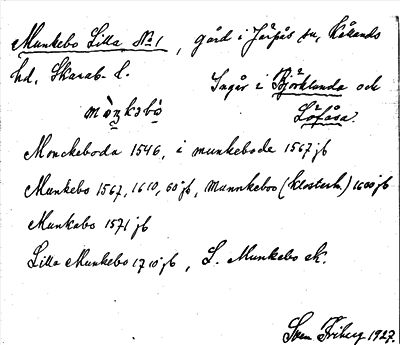 Munkebo Lilla No 1, gård i Järpås sn, Kålands
hd, Skarab. l. Ingår i Björklunda och
Löfåsa.
mòŋkəbò
Monckeboda 1546, i munkebode 1567 jb
Munkebo 1567, 1610, 60 jb, Munnkeboo (Klosterh.) 1600 jb
Munkabo 1571 jb
Lilla Munkebo 1710 jb, L. Munkebo ek.
Sven Friberg 1927.